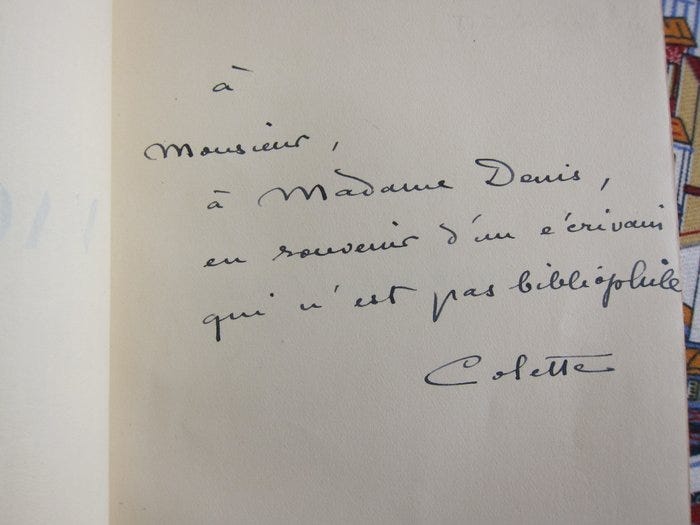 à
Monsieur,
à Madame Denis,
en souvenir d'un écrivain
qui n'est pas bibliophile
Colette